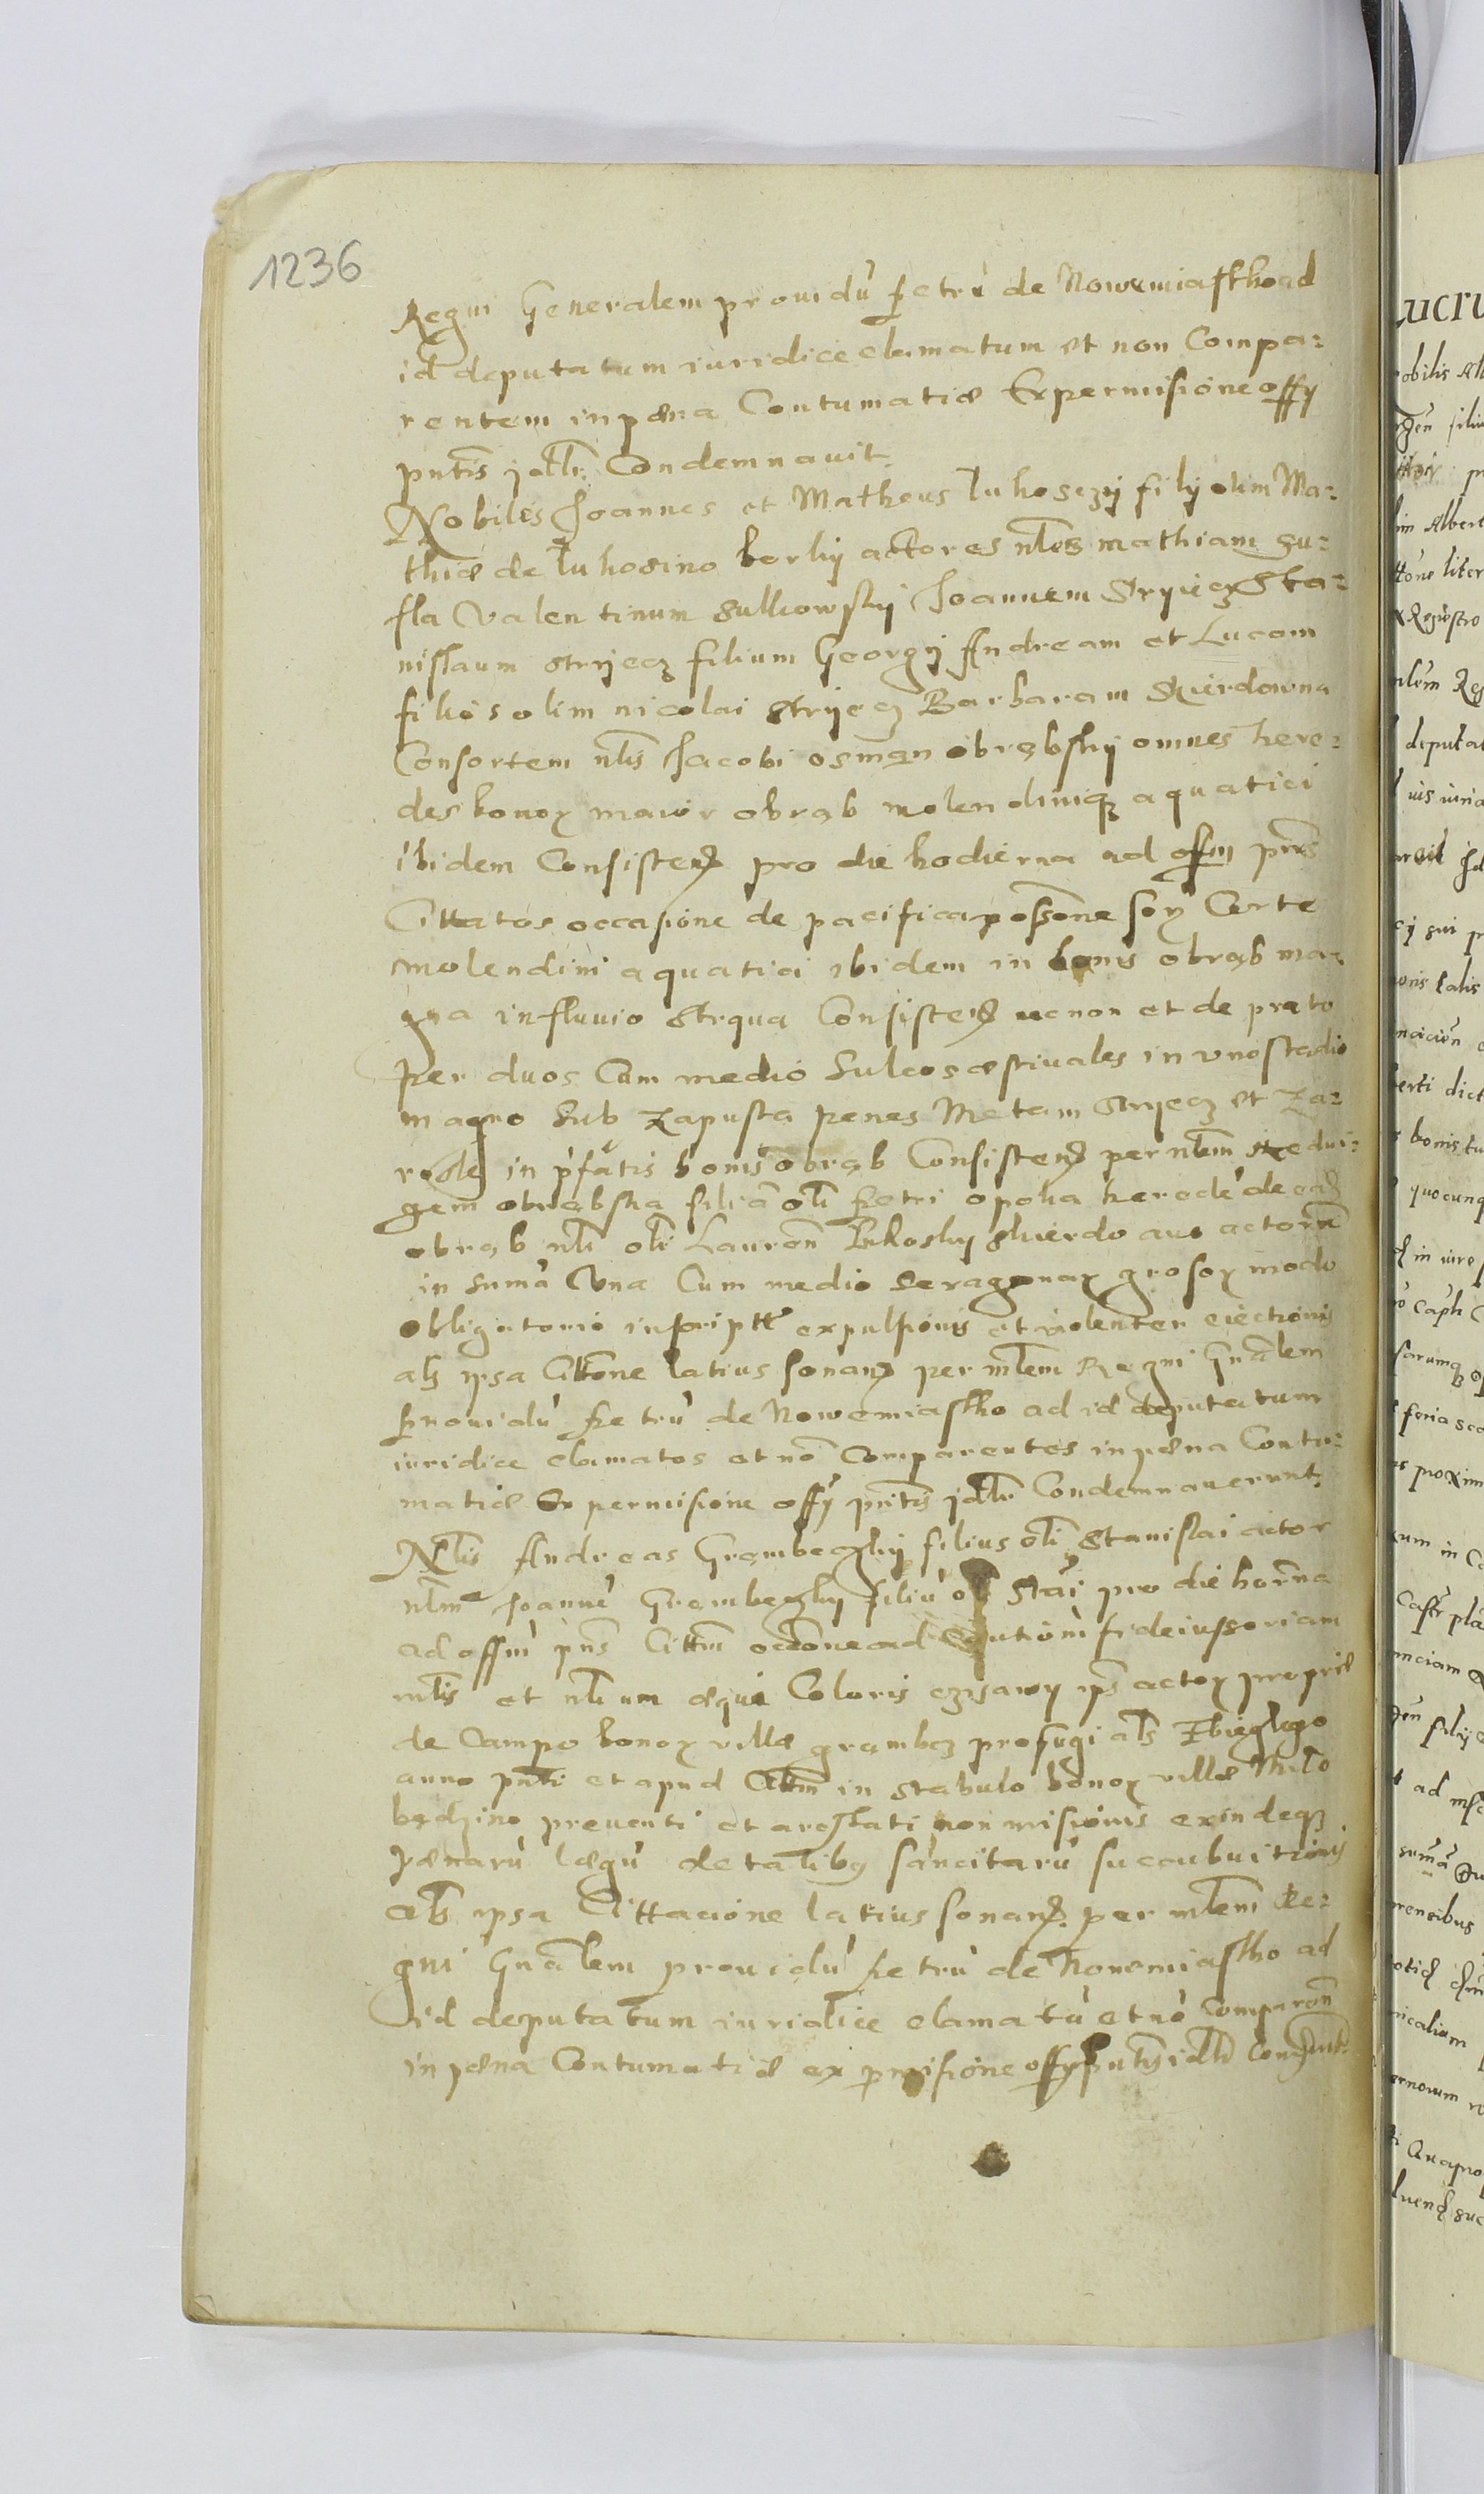 1236
Regni Generalem prouidu petru de Nowemiastho ad
id deputatum iuridice clamatum et non Compa=
rentem in pæna Contumatiæ Ex permisione offy
pntis jdtr Condemnauit.
Nobiles Joannes et Matheus Lukosezy filij olim Ma=
thiæ de Lukosino borky actores nles mathiam gu=
sla Valentinum Sulkowsky Joannem Stryiecz Sta=
nislaum stryecz filium Georgij Andream et Lucam
filios olim nicolai Stryecz Barbaram Skierdowna
Consortem nlis Jacobi osman obrąbsky omnes here=
des bonor maior obrąb molendiniq aquatici
ibidem Consisten pro die hodierna ad offm pns
Cittatos occasione de pacifica possone sorte
molendini aquatici ibidem in bonis obrąb ma=
gna in fluuio Strqua Consisten necnon et de prato
per duos Cum medio Sulcos æstiuales in vno stadio
magno Sub Zapusta penes Metam Stryecz et Za=
in pfatis bonis obrąb Consisten per nlem Hedui=
gem obrąbska filia oli petri opoka herede de
obrąb nli oli Lauren Lukosky skierdo auo actorum
in suma Vna Cum medio Seragenar grosor modo
obligatorio inscript expulsionis et violenter eiectionis
als ipsa Cittone latius sonan per mlem Regni Gnalem
prouidu petru de Nowemiastho ad id deputatum
iuridice clamatos et no Comparentes in pæna Contu=
matiæ Ex permisione offy pntis jdtr Condemnauerunt.
Nlis Andreas Grąmbeczky filius oli Stanislai actor
nlem Joanne Grąmbeczky filiu oli Stai pro die horna
ad offm pns Cittm occone ad Cautiom fideiussoriam
mlis et nlium æqui Coloris czisawy ipi actor proprii
de Campo bonor villæ grąmbcz profugi als Zbieglego
anno pnti et apud Cittm in stabulo bonor villæ Milo
bądzino preuenti et arestati non misionis exindeq
pænaru legu de talibq sancitaru succubuitionis
als ipsa Cittacione latius sonan per mlem Re=
gni Gnalem prouidu petru de Nouomiastho ad
id deputatum iuridice clamatu et no Comparen
in pæna Contumatiæ ex pmisione offy pntis jdtr Condemt